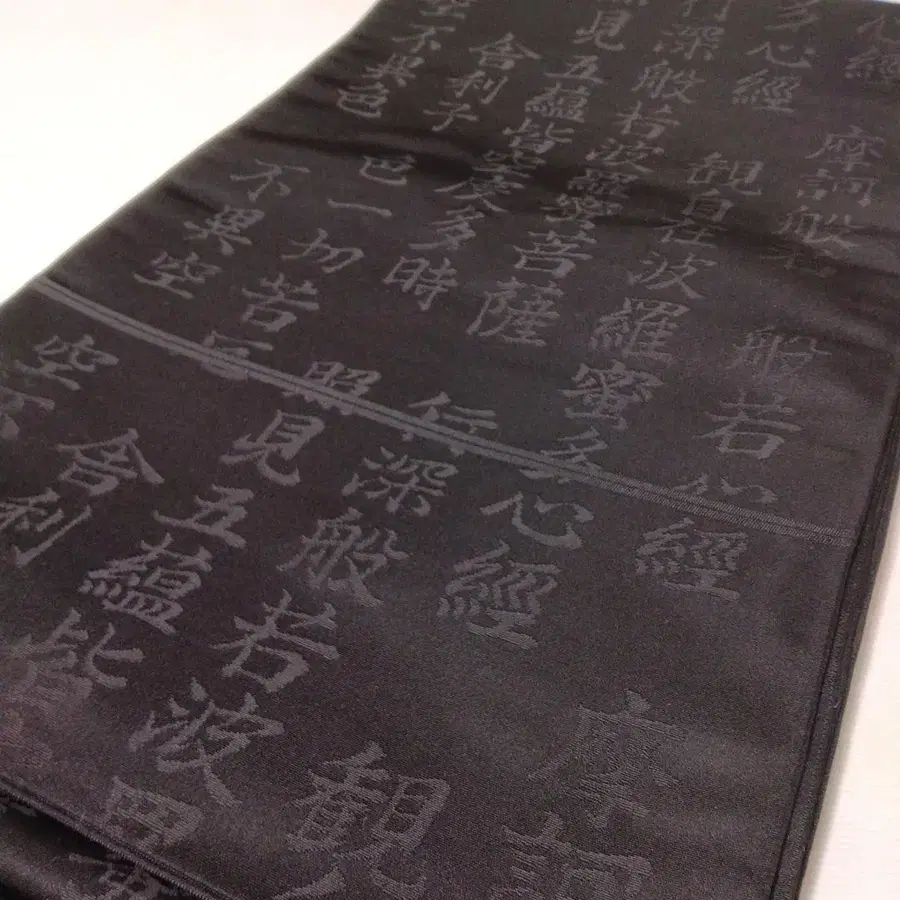 心經
摩訶般若
般若心經
摩訶
多心經
観自在
波羅蜜多心經
観
行深般若波羅蜜菩薩
行深般若波
見五蘊皆空度多時
照見五蘊皆
舍利子
一切若
舍利
空不異色
不異空
空不